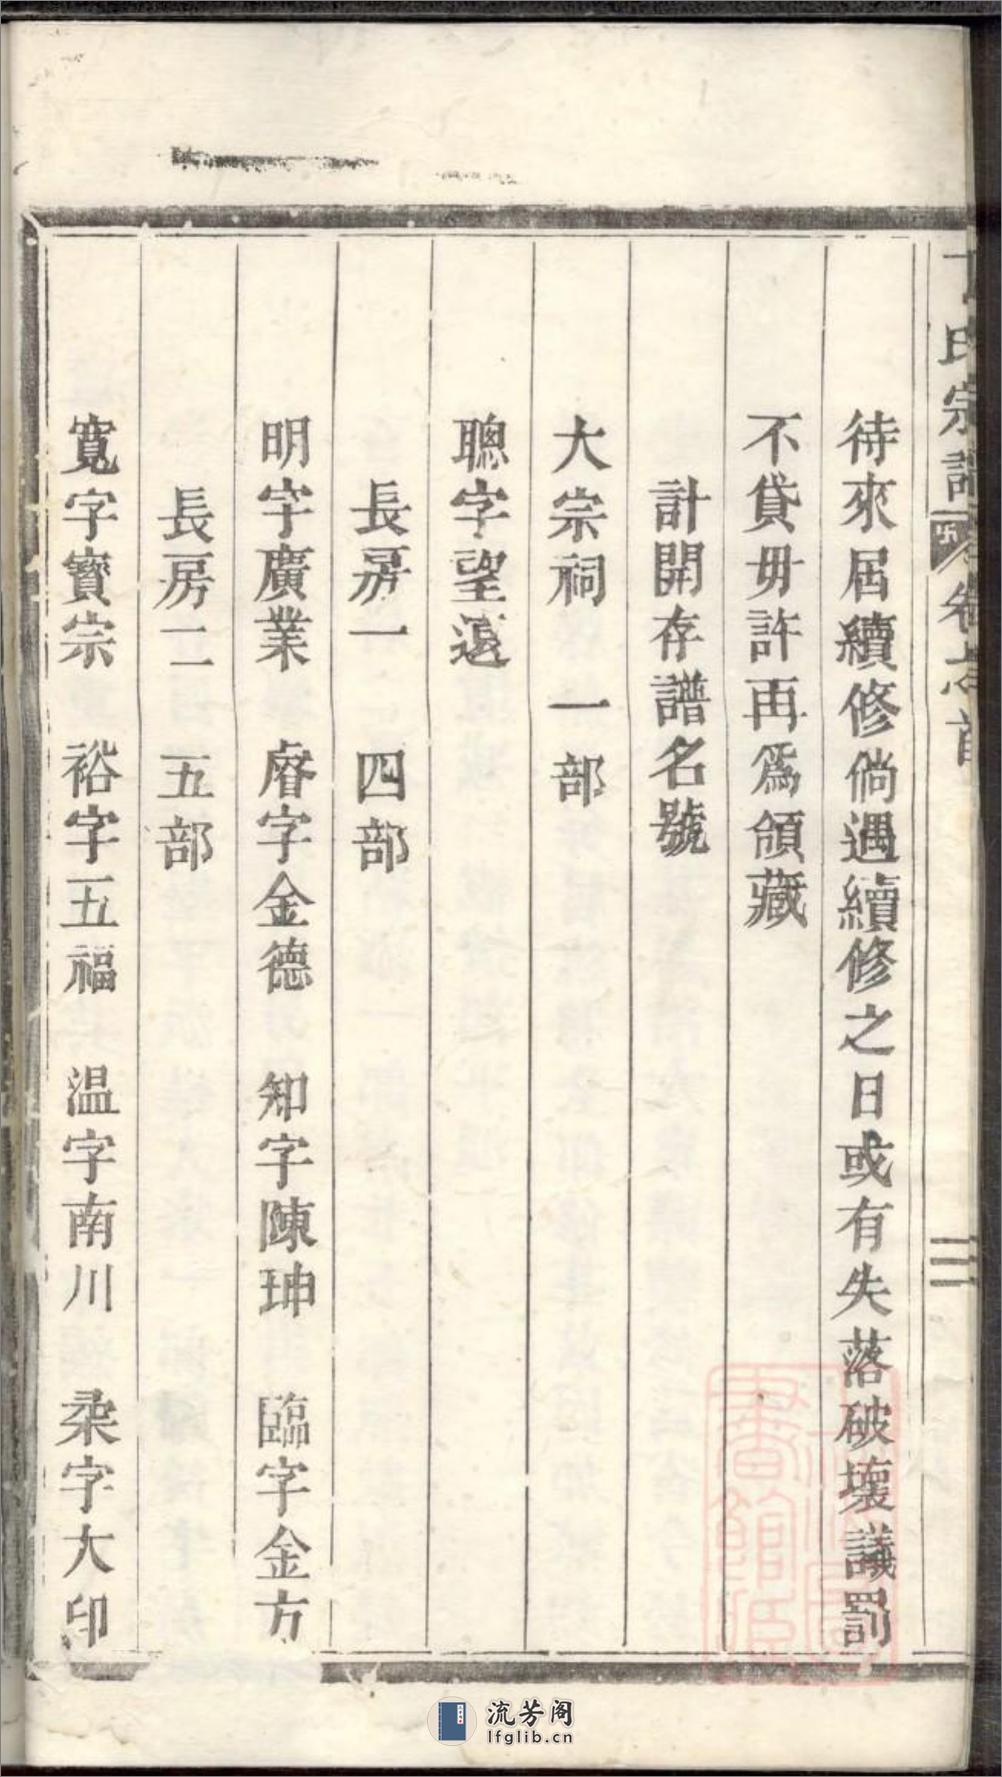 氏宗譜 卷之首 三
待來屆續修倘遇續修之日或有失落破壞議罰
不貸毋許再爲領藏
計開存譜名號
大宗祠 一部
聰字望遠
長房一 四部
明字廣業 睿字金德 知字陳珅 臨字金方
長房二 五部
寬字寶宗 裕字五福 温字南川 柔字大印
流芳阁
lfglib.cn